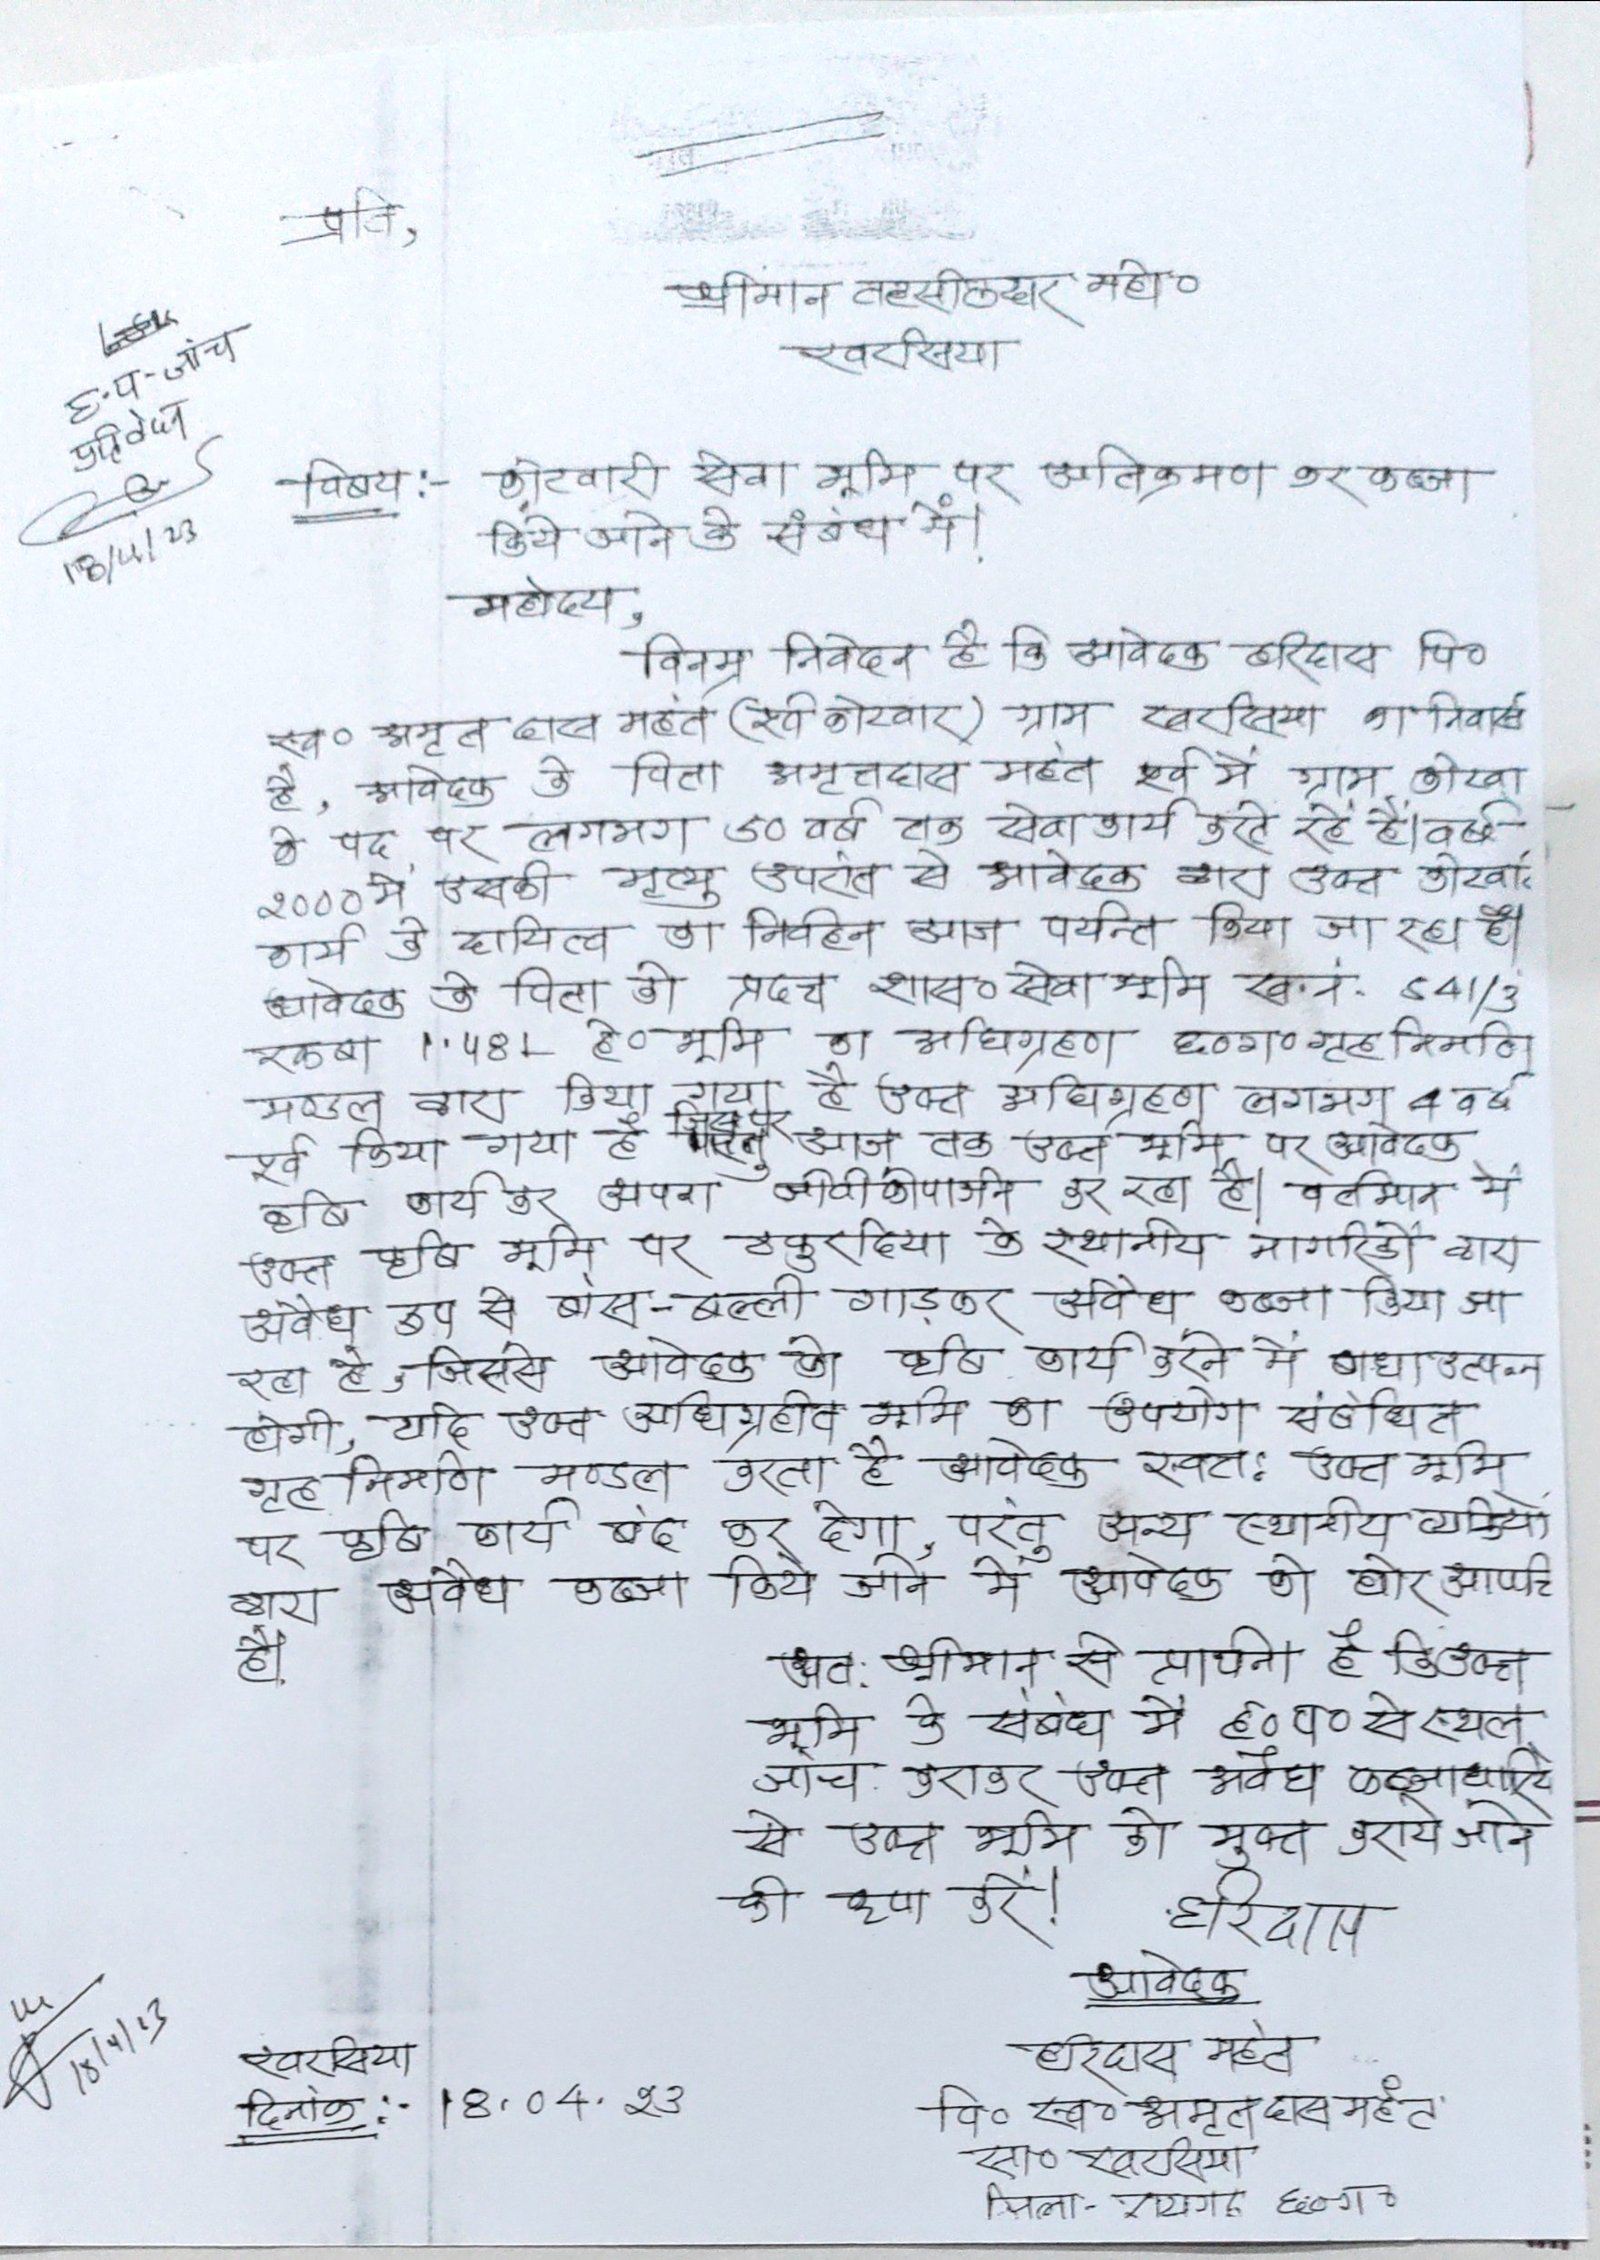 प्रति,
श्रीमान तहसीलदार महो०
खरसिया
ह.प-जांच
प्रतिवेदन
18/4/23
विषय:- कोटवारी सेवा भूमि पर अतिक्रमण कर कब्जा
किये जाने के संबंध में!
महोदय,
विनम्र निवेदन है कि आवेदक हरिदास पि०
स्व० अमृत दास महंत (पूर्व कोटवार) ग्राम खरसिया का निवासी
है, आवेदक के पिता अमृतदास महंत पूर्व में ग्राम कोटवा
के पद पर लगभग 50 वर्ष तक सेवा कार्य करते रहें हैं। वर्ष
2000 में उसकी मृत्यु उपरांत से आवेदक द्वारा उक्त कोटवार
कार्य के दायित्व का निर्वहन आज पर्यन्त किया जा रहा है।
आवेदक के पिता को प्रदत्त शास० सेवा भूमि ख.नं. 541/3
रकबा 1.481 हे० भूमि का अधिग्रहण छ०ग० गृह निर्माण
मण्डल द्वारा किया गया है उक्त अधिग्रहण लगभग 4 वर्ष
पूर्व किया गया है जिस पर आज तक उक्त भूमि पर आवेदक
कृषि कार्य कर अपना जीवीकोपार्जन कर रहा है। वर्तमान में
उक्त कृषि भूमि पर ठाकुरदिया के स्थानीय नागरिकों द्वारा
अवैध रुप से बांस-बल्ली गाड़कर अवैध कब्जा किया जा
रहा है, जिससे आवेदक को कृषि कार्य करने में बाधा उत्पन्न
होगी, यदि उक्त अधिग्रहीत भूमि का उपयोग संबंधित
गृह निर्माण मण्डल करता है आवेदक स्वतः उक्त भूमि
पर कृषि कार्य बंद कर देगा, परंतु अन्य स्थानीय व्यक्तियों
द्वारा अवैध कब्जा किये जाने में आवेदक को घोर आपत्ति
है।
अतः श्रीमान से प्रार्थना है कि उक्त
भूमि के संबंध में ह०प० से स्थल
जांच कराकर उक्त अवैध कब्जाधारियों
से उक्त भूमि को मुक्त कराये जाने
की कृपा करें!
हरिदास
आवेदक
हरिदास महंत
पि० स्व० अमृत दास महंत
सा० खरसिया
जिला- रायगढ़ छ०ग०
खरसिया
दिनांक:- 18.04.23
18/4/23